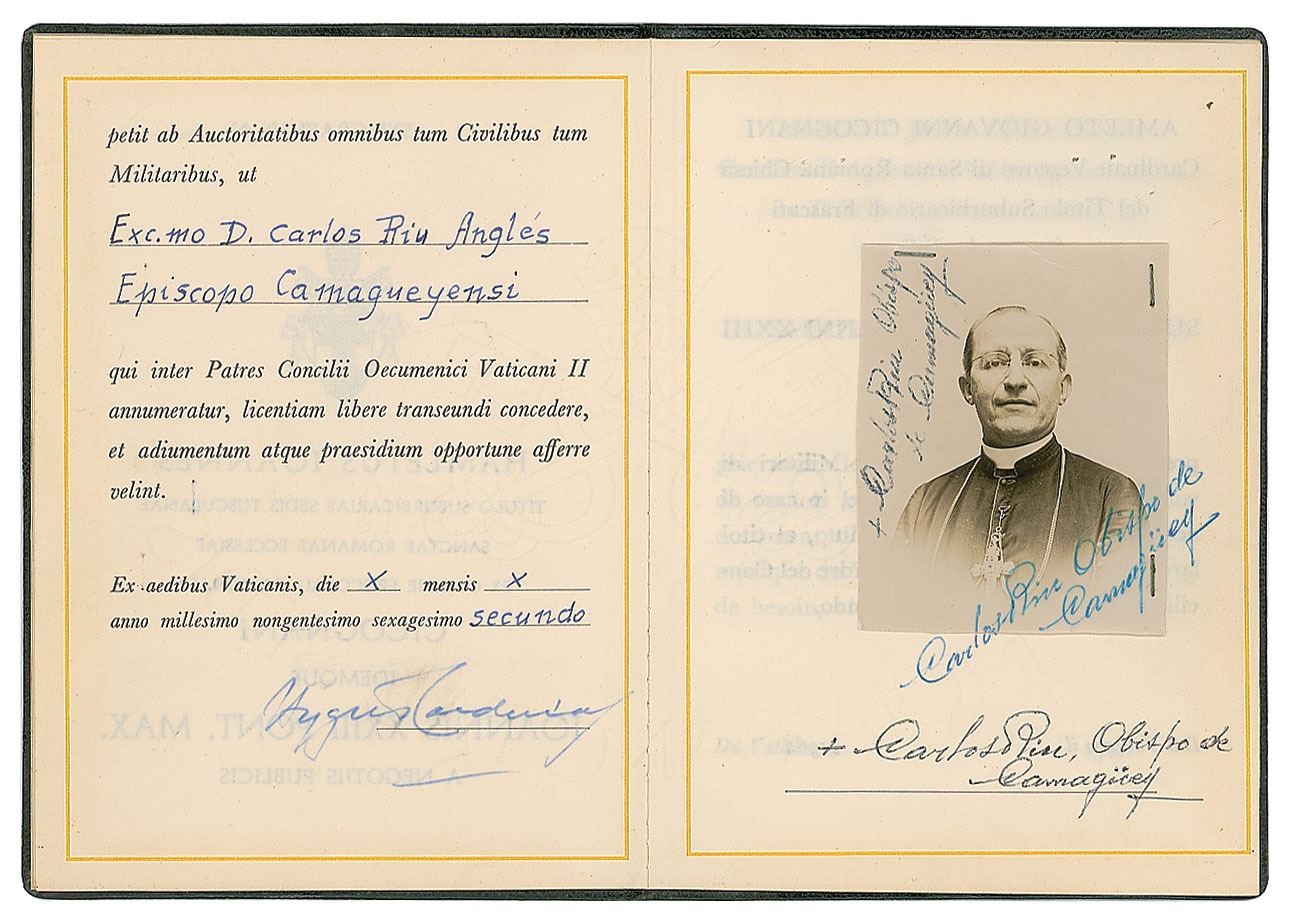 petit ab Auctoritatibus omnibus tum Civilibus tum
Militaribus, ut
Exc.mo D. Carlos Riu Anglés
Episcopo Camagueyensi
qui inter Patres Concilii Oecumenici Vaticani II
annumeratur, licentiam libere transeundi concedere,
et adiumentum atque praesidium opportune afferre
velint.
Ex aedibus Vaticanis, die X mensis X
anno millesimo nongentesimo sexagesimo secundo
+ Carlos Riu Obispo
de Camagüey
Carlos Riu Obispo de
Camagüey
+ Carlos Riu, Obispo de
Camagüey